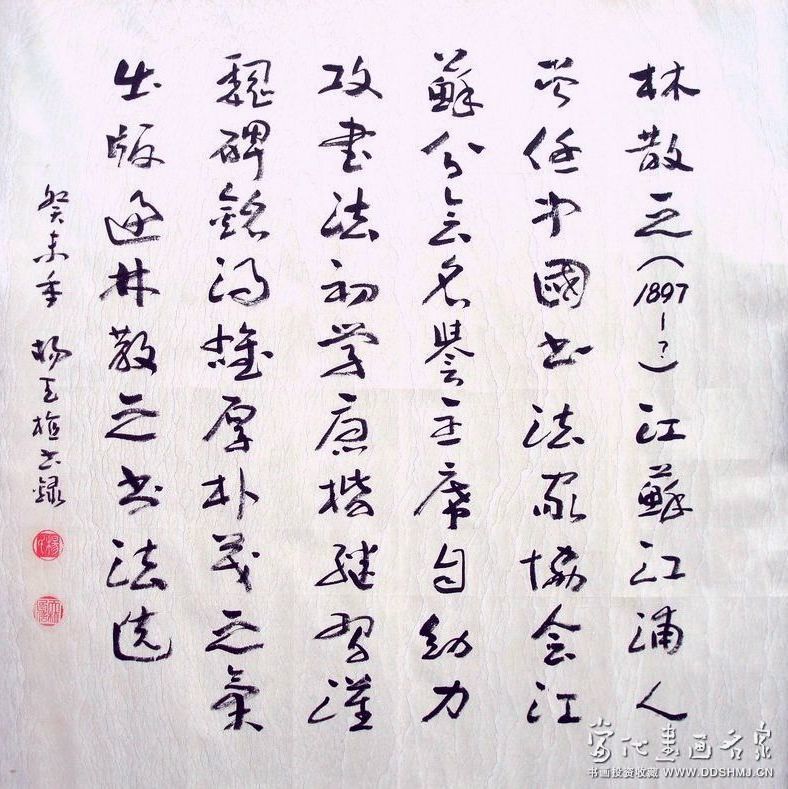 林散之(1897-?)江蘇江浦人
曾任中國书法家協会江
蘇分会名譽主席自幼力
攻書法初学唐楷継習漢
魏碑銘得雄厚朴茂之氣
出版過林散之书法选
癸未年 楊天植书録
當代書画名家
书画投资收藏 WWW.DDSHMJ.CN